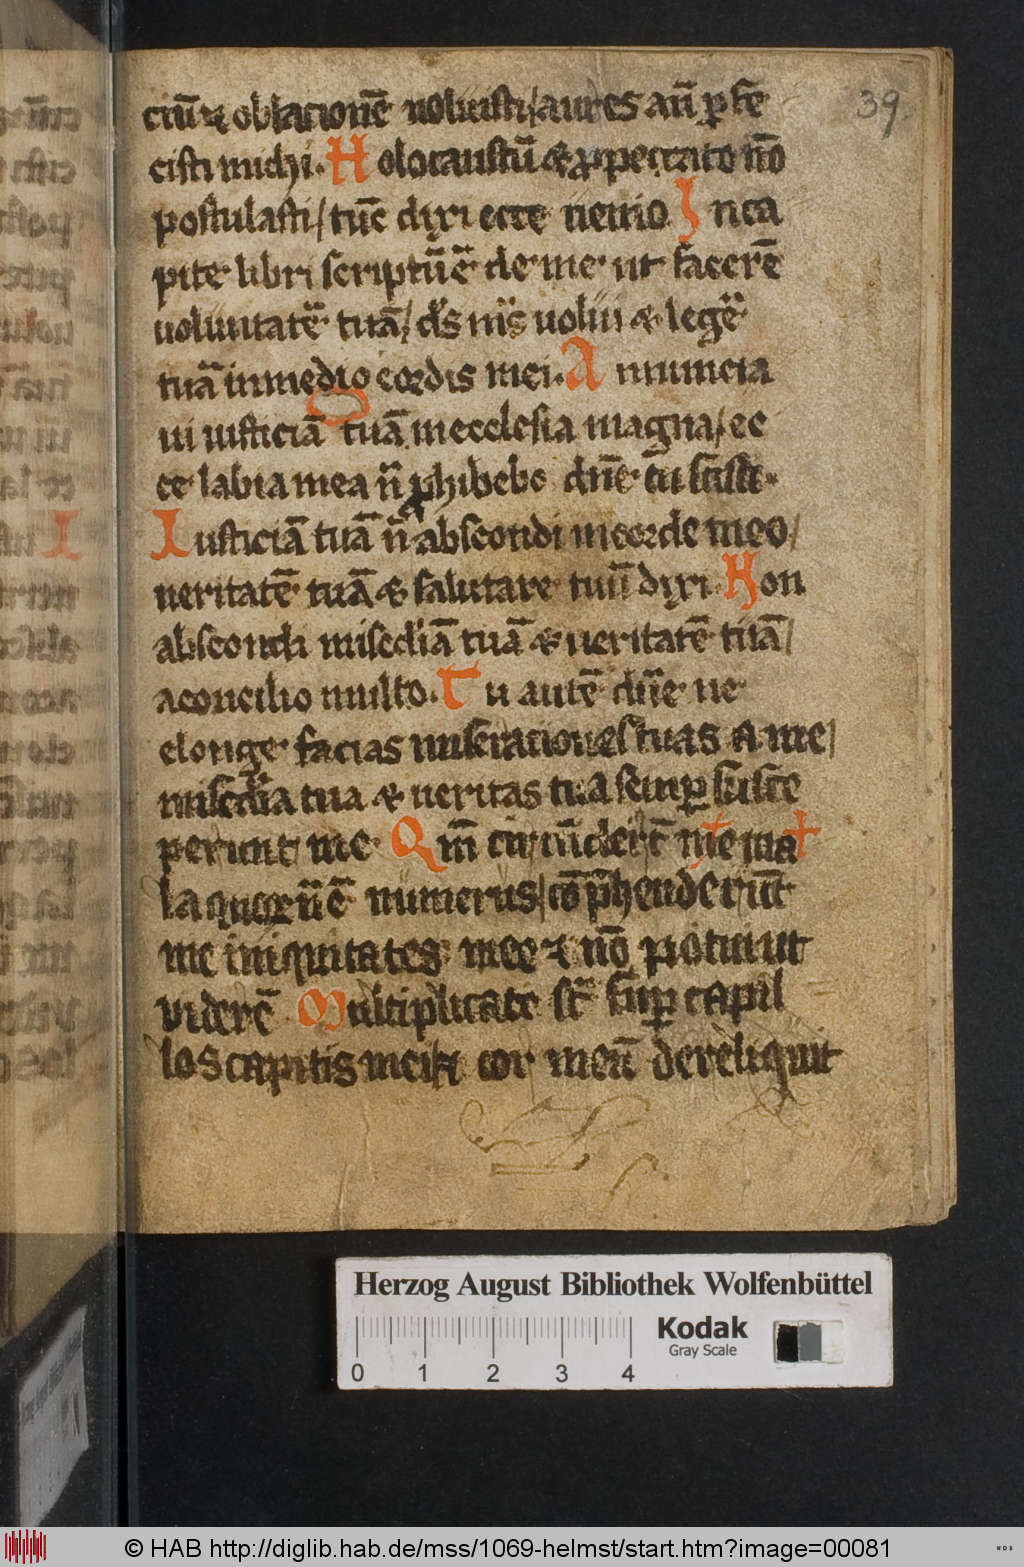 39
ciū ⁊ oblacionē noluisti / aures aūt ꝑfe
cisti michi. Holocaustū & ꝓ peccato nō
postulasti / tūc dixi ecce uenio In ca
pite libri scriptū ē de me ut facerē
uoluntatē tuā / ds ms uolui & legē
tuā in medio cordis mei. A nnuncia
ui iusticiā tuā in ecclesia magna / ec
ce labia mea n̄ ꝓhibebo dn̄e tu scisti.
Iusticiā tuā n̄ abscondi in corde meo /
ueritatē tuā & salutare tuū dixi Non
abscondi misc̄diā tuā & ueritatē tuā /
a concilio multo. Tu autē dn̄e ne
elonge facias miserationes tuas a me /
misc̄dia tua & ueritas tua semꝑ susce
perunt me Qm̄ circūdedert̄ me ma
la quoꝝ n̄ ē numerus / cōp̄henderūt
me iniquitates mee ⁊ nō potui ut
viderē Multiplicate st̄ suꝑ capil
los capitis mei ⁊ cor meū dereliquit
Herzog August Bibliothek Wolfenbüttel
0 1 2 3 4
Kodak
Gray Scale
© HAB http://diglib.hab.de/mss/1069-helmst/start.htm?image=00081